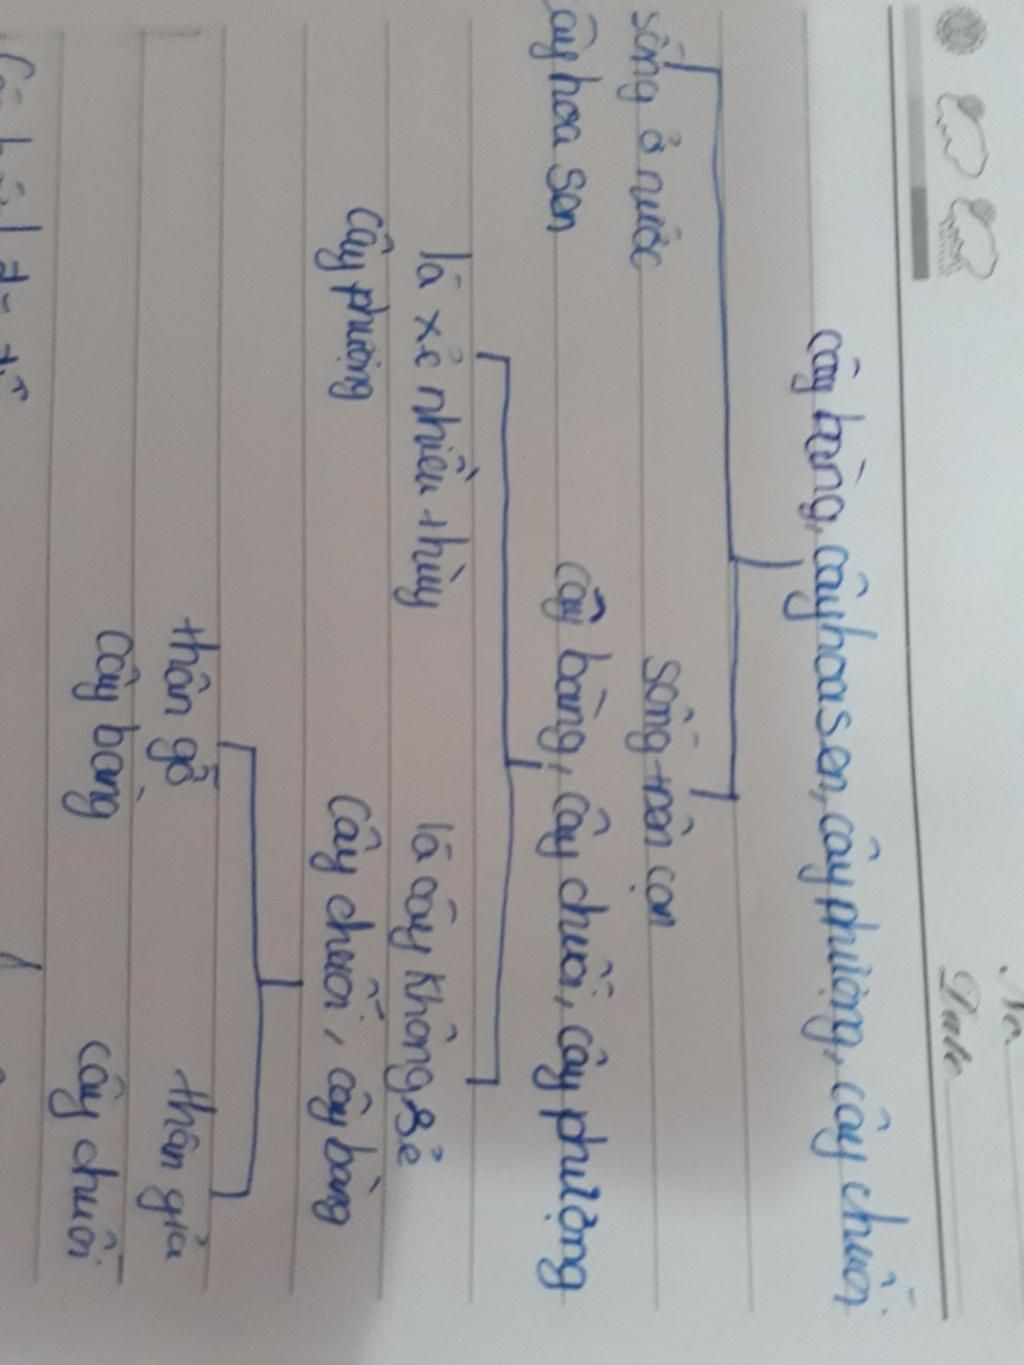 No.
Date
cây bàng, cây hoa sen, cây phượng, cây chuối
sống ở nước sống trên cạn
cây hoa sen cây bàng, cây chuối, cây phượng
lá xẻ nhiều thùy lá cây không sẻ
cây phượng cây chuối, cây bàng
thân gỗ thân giả
cây bàng cây chuối